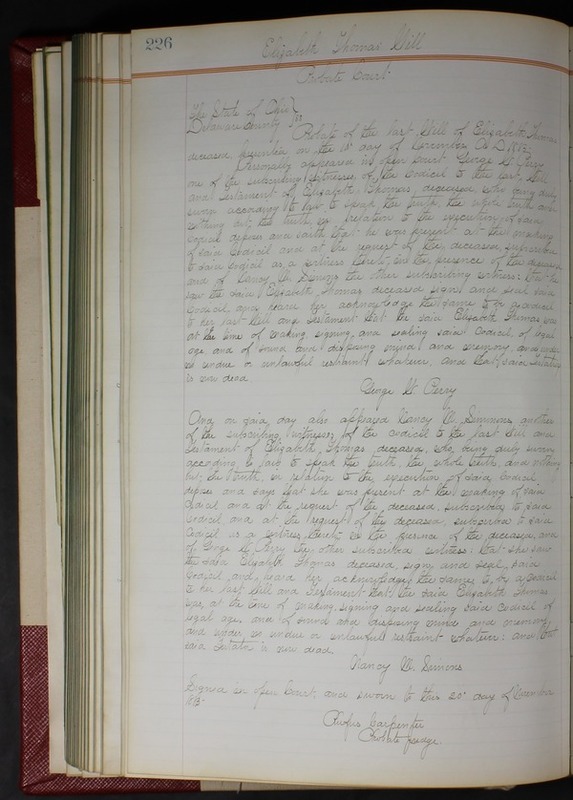 226
Elizabeth Thomas Will
Probate Court
The State of Ohio
Delaware County ss
Probate of the last Will of Elizabeth Thomas
deceased, on the day of November A D
Personally appeared in open Court George W. Perry
one of the subscribing witnesses, of the Codicil to the last Will
and Testament of Elizabeth Thomas, deceased, who being duly
sworn according to law to speak the truth, the whole truth and
nothing but the truth, in relation to the execution of said
Codicil deposes and saith that he was present at the making
of said Codicil and at the request of the deceased, subscribed
to said Codicil as a witness thereto, in the presence of the deceased
and of Nancy M. Simons the other subscribing witness: that he
saw the said Elizabeth Thomas deceased sign and seal said
Codicil, and heard her acknowledge the same to be a Codicil
to her last Will and Testament that the said Elizabeth Thomas was
at the time of making, signing, and sealing said Codicil, of legal
age, and of sound and disposing mind and memory, and under
no undue or unlawful restraint whatever, and that said Testatrix
is now dead.
George W. Perry
And on said day also appeared Nancy M. Simmons another
of the subscribing witnesses of the Codicil to the last Will and
Testament of Elizabeth Thomas deceased, who, being duly sworn
according to law to speak the truth, the whole truth, and nothing
but the truth, in relation to the execution of said Codicil,
deposes and says that she was present at the making of said
Codicil and at the request of the deceased, subscribed to said
Codicil and at the request of the deceased, subscribed to said
Codicil as a witness thereto in the presence of the deceased, and
of George W. Perry the other subscribed witness: that she saw
the said Elizabeth Thomas deceased, sign, and seal, said
Codicil, and, heard her, acknowledge the same to, be a Codicil
to her last Will and Testament that the said Elizabeth Thomas
was, at the time of making, signing and sealing said Codicil of
legal age, and of sound and disposing mind and memory
and under no undue or unlawful restraint whatever: and that
said Testatrix is now dead.
Nancy M. Simons
Signed in open Court, and sworn to this 20" day of November
Rufus Carpenter
Probate Judge.